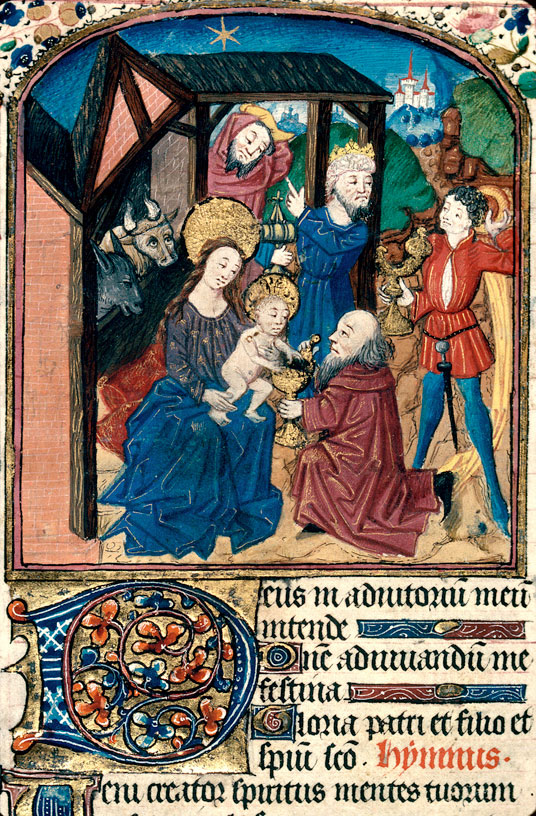 Deus in adiutoriū meū
intende
Dne adiuuandū me
festina
Gloria patri et filio et
spiūi sēo. hymnus.
Veni creator spiritus mentes tuorum